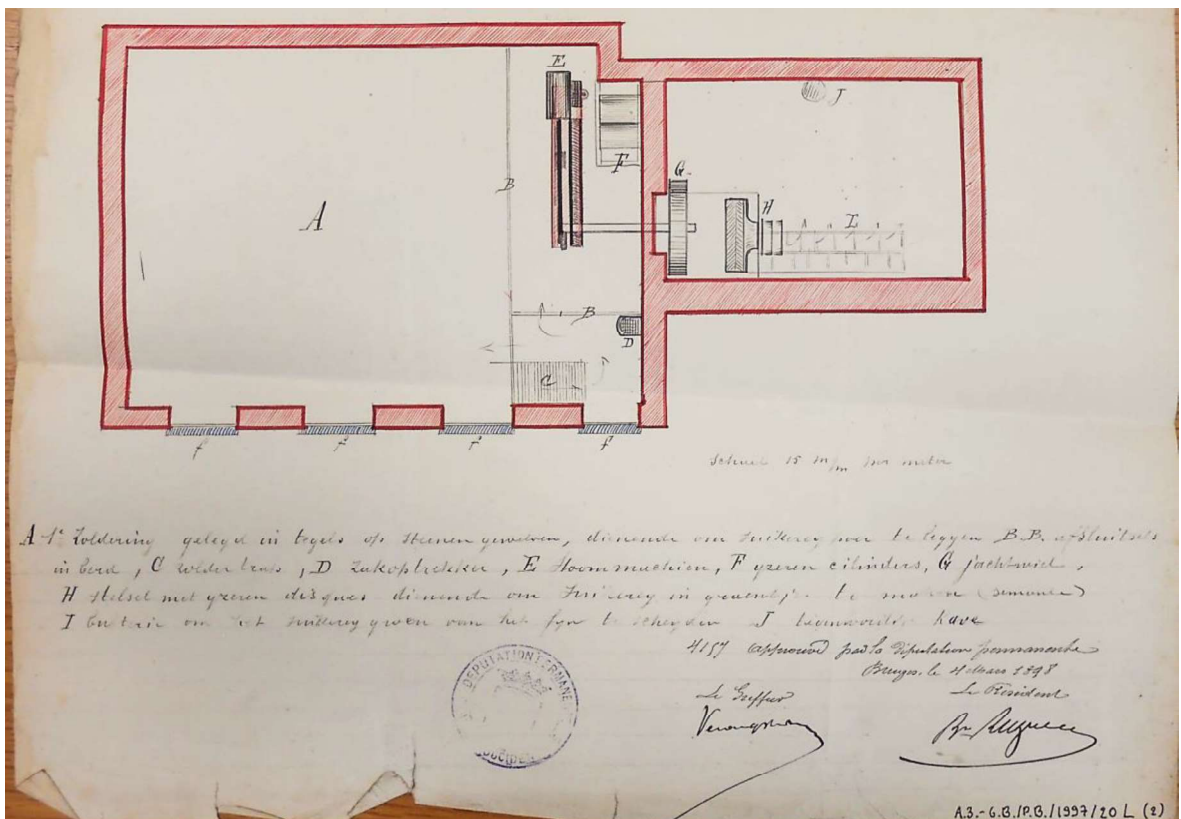 E
J
F
G
B
A
H
I
B
D
C
f f f f
Schaal 15 m/m per meter
A 1e Zoldering gelegd in tegels op steenen gewelven, dienende om suikerij over te leggen B.B. afsluitsels
in berd, C zolder trap, D Zakoptrekker, E Stoommachien, F yzeren cilinders, G jachtwiel,
H Stelsel met yzeren disques dienende om suikerey in te maken (semoule)
I om het suikerey van het fyn te scheyden J kave
4157 approuvé par la Députation permanente
Bruges, le 4 Mars 1898
Le Greffier Le Président
DEPUTATION PERMANE
A.B.-G.B./P.B./1997/20 L (2)